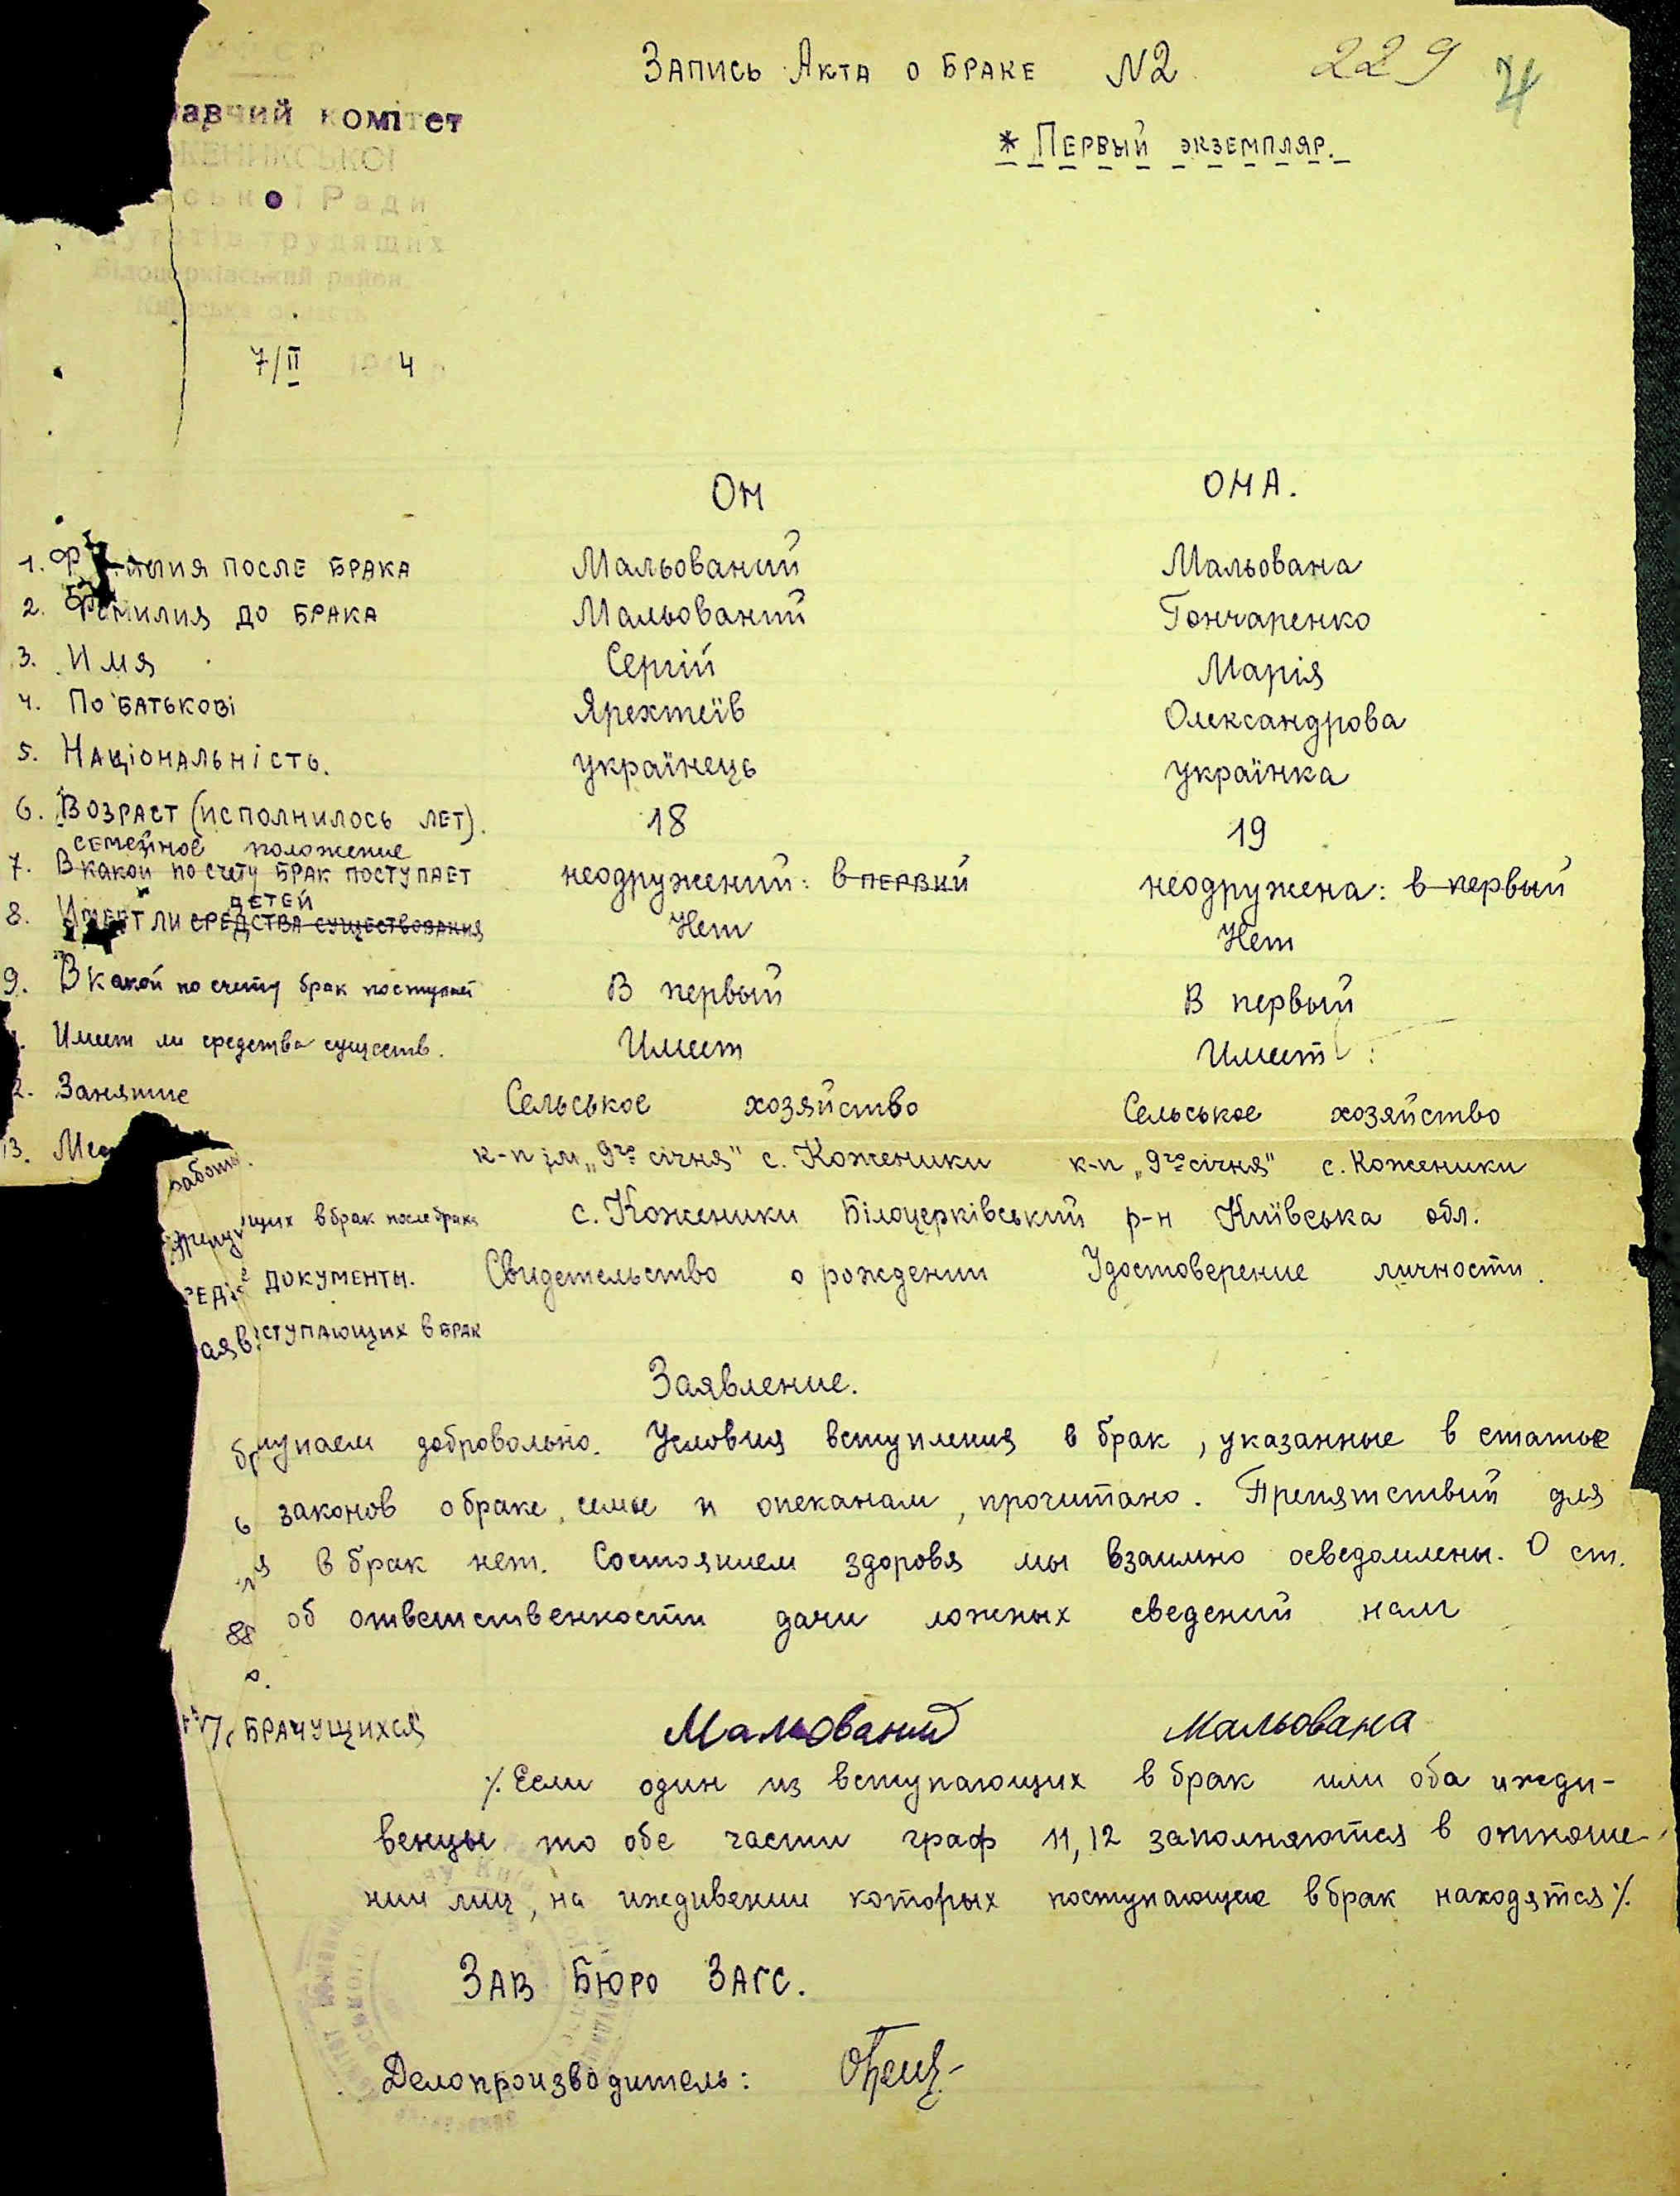 Запись Акта о браке N2 229 4
* Первый экземпляр.
авчий комітет
ЖЕНИКСЬКОЇ
ської Ради
трудящих
Білоцерківський район
Київська область
7/II 194 4
ОН ОНА.
1. Ф милия после брака Мальований Мальована
2. Фамилия до брака Мальований Гончаренко
3. Имя Сергій Марія
4. По батькові Ярехтеїв Олександрова
5. Національність. українець українка
6. Возраст (исполнилось лет). 18 19
семейное положение
7. В какой по счету брак поступает неодружений: в первий неодружена: в первый
детей
8. Имеет ли средства существования Нет Нет
9. В какой по счету брак поступает В первый В первый
. Имеет ли средства существ. Имеет Имеет :
2. Занятие Сельськое хозяйство Сельськое хозяйство
13. Мес работы. к-п ім „9го січня" с. Коженики к-п „9го січня" с. Коженики
щих в брак после брака с. Коженики Білоцерківський р-н Київська обл.
документы. Свидетельство о рождении Удостоверение личности.
ступающих в брак
Заявление.
тупаем добровольно. Условия вступления в брак, указанные в статье
законов о браке, семье и опеканам, прочитано. Препятствий для
я в брак нет. Состоянием здоровя мы взаимно осведомлены. О ст.
88 об ответственности дачи ложных сведений нам
о.
брачущихся Мальований Мальована
/. Если один из вступающих в брак или оба ижди-
венцы то обе части граф 11, 12 заполняются в отноше-
нии лиц, на иждивении которых поступающие в брак находятся /.
Зав Бюро Загс.
Делопроизводитель: